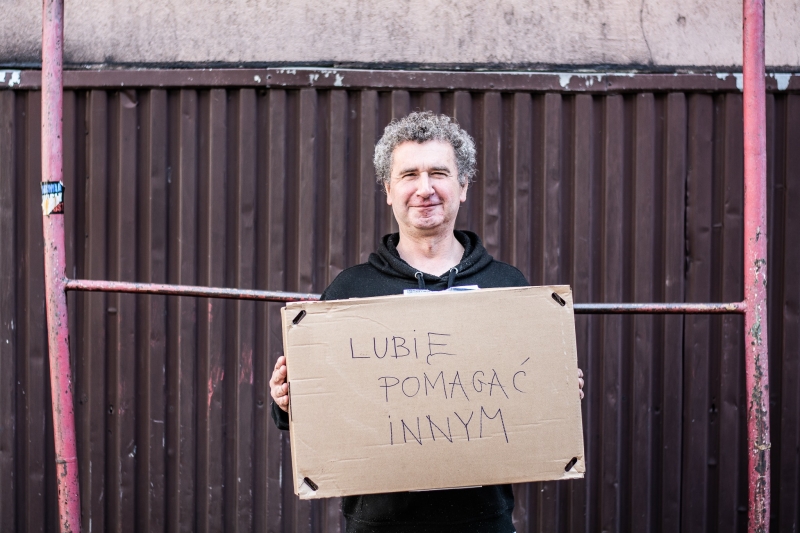 LUBIĘ
POMAGAĆ
INNYM